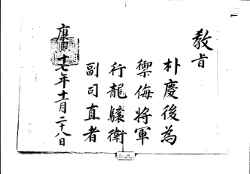 教旨
朴慶後為
禦侮將軍
行龍驤衛
副司直者
康熙十七年十一月二十八日